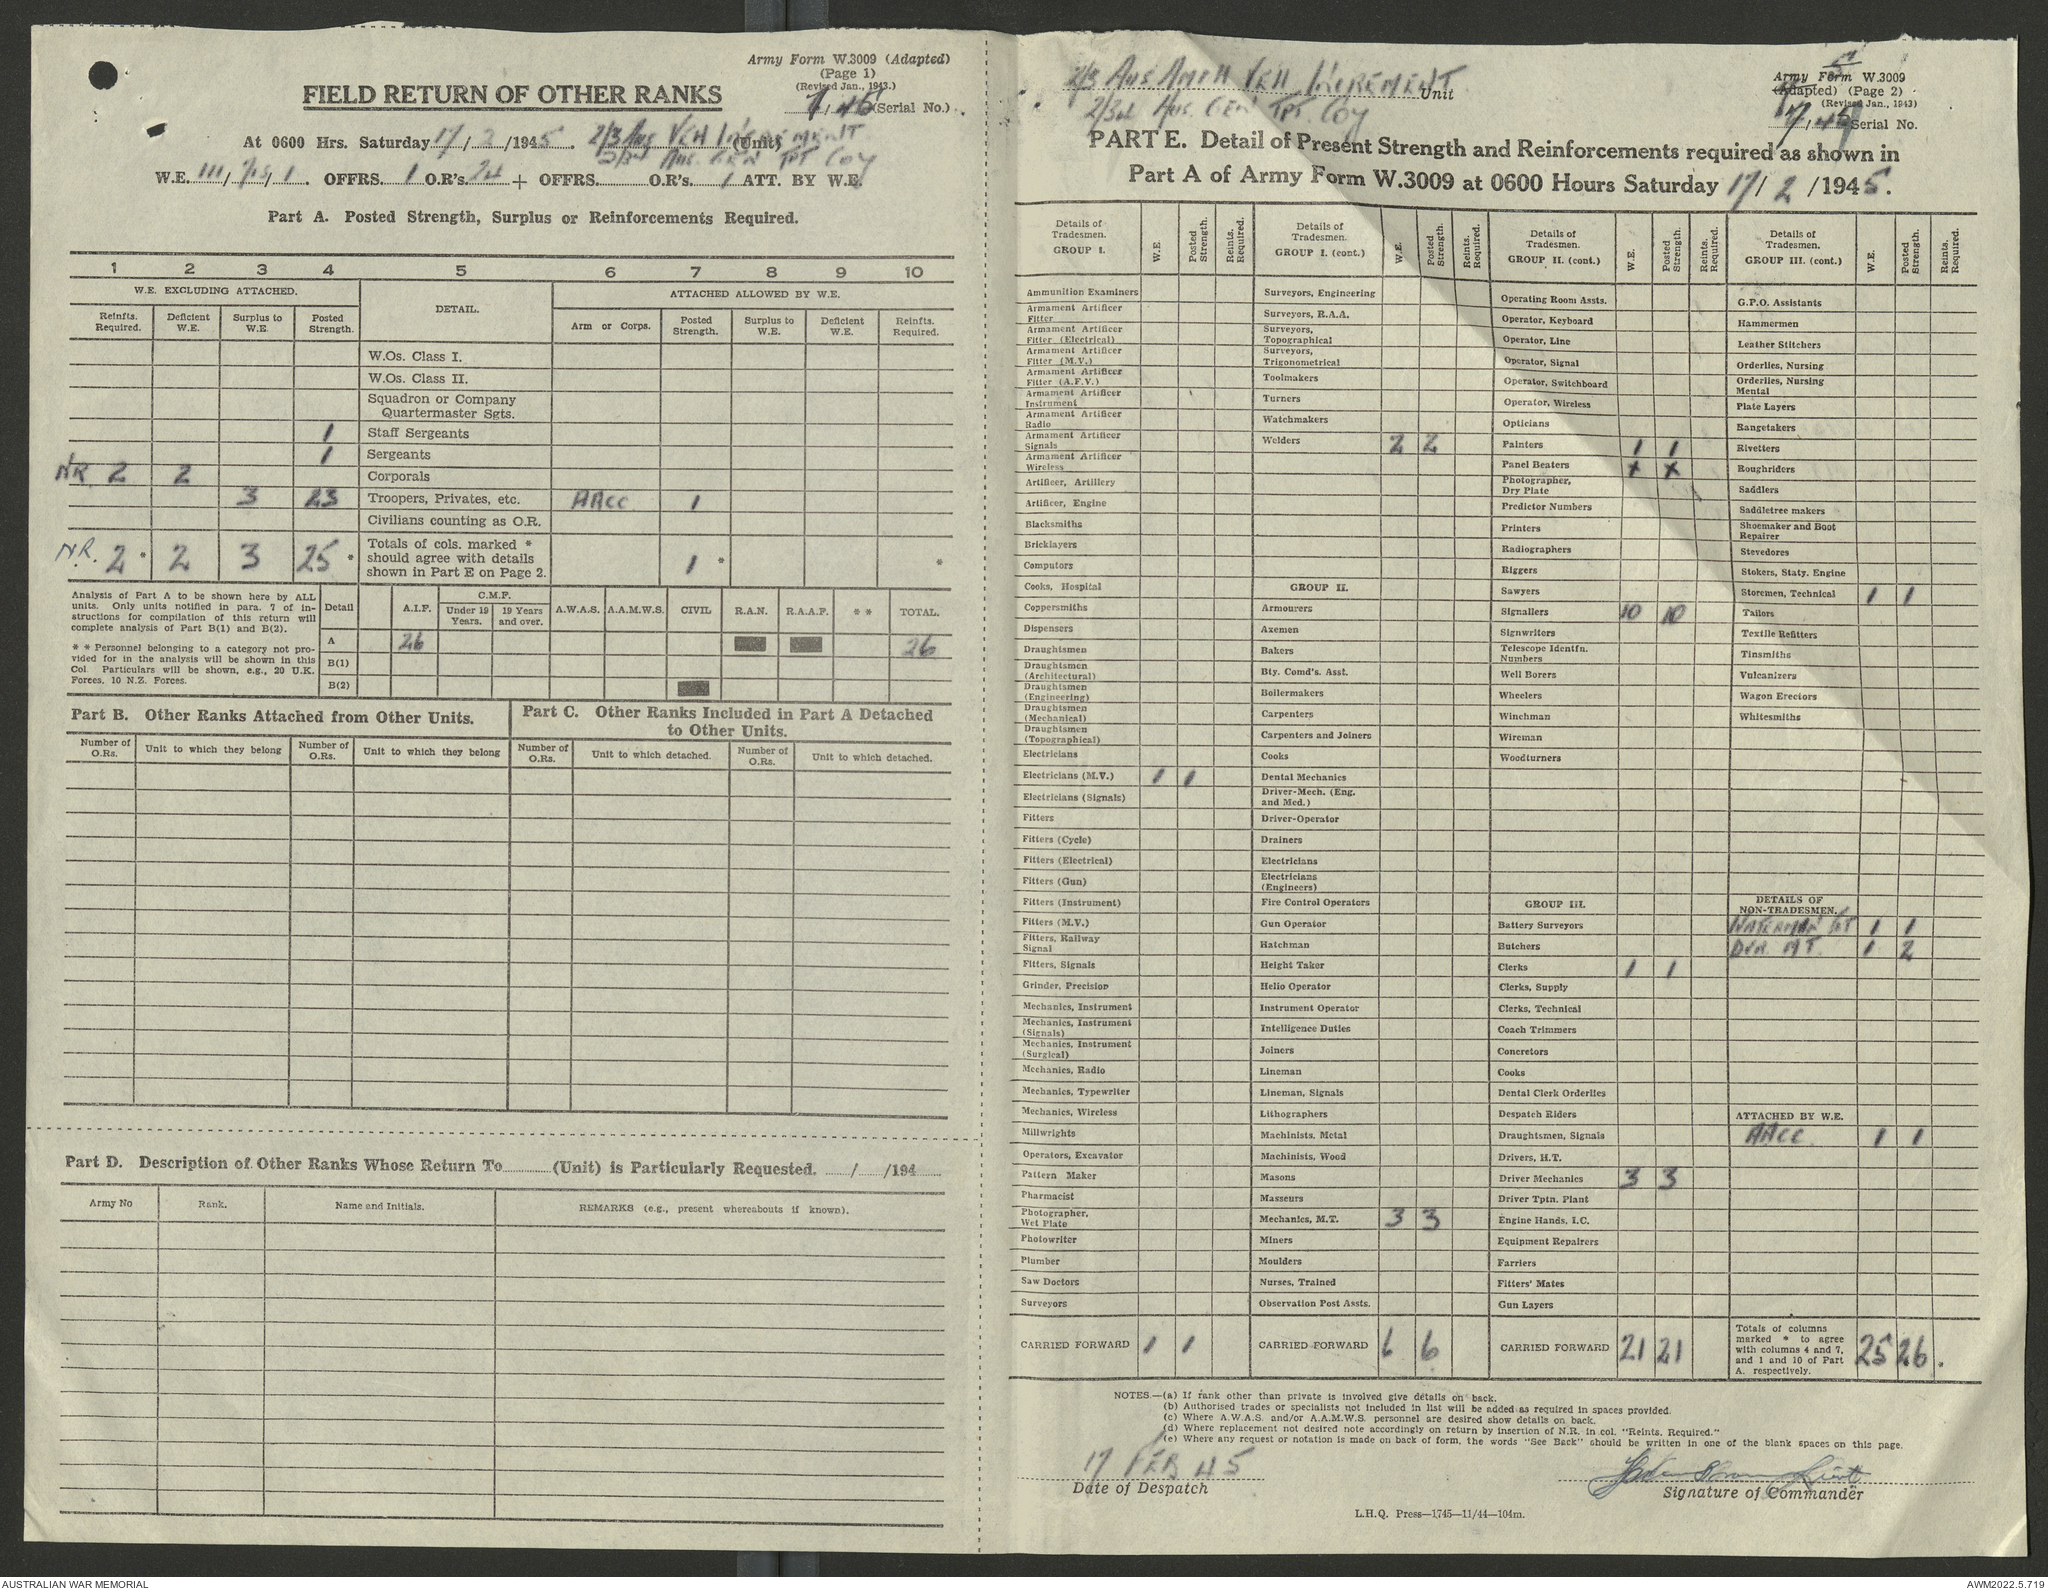 Army Form W.3009 (Adapted)
(Page 1)
(Revised Jan., 1943.)
FIELD RETURN OF OTHER RANKS
7/45 (Serial No.)
At 0600 Hrs. Saturday 17/2/1945. 2/3 Aus VEH INCREMENT (Unit)
2/3rd Aus. GEN TPT COY
W.E. 111/ / 1. OFFRS. 1 O.R's. 24 + OFFRS. O.R's. 1 ATT. BY W.E.
Part A. Posted Strength, Surplus or Reinforcements Required.
1 2 3 4 5 6 7 8 9 10
W.E. EXCLUDING ATTACHED. DETAIL. ATTACHED ALLOWED BY W.E.
Reinfts. Required. Deficient W.E. Surplus to W.E. Posted Strength. Arm or Corps. Posted Strength. Surplus to W.E. Deficient W.E. Reinfts. Required.
W.Os. Class I.
W.Os. Class II.
Squadron or Company Quartermaster Sgts.
1 Staff Sergeants
1 Sergeants
NR 2 2 Corporals
3 23 Troopers, Privates, etc. AACC 1
Civilians counting as O.R.
N.R. 2 * 2 3 25 * Totals of cols. marked * should agree with details shown in Part E on Page 2. 1 * *
Analysis of Part A to be shown here by ALL units. Only units notified in para. 7 of instructions for compilation of this return will complete analysis of Part B(1) and B(2).
* * Personnel belonging to a category not provided for in the analysis will be shown in this Col. Particulars will be shown, e.g., 20 U.K. Forces, 10 N.Z. Forces.
Detail A.I.F. C.M.F. Under 19 Years. 19 Years and over. A.W.A.S. A.A.M.W.S. CIVIL R.A.N. R.A.A.F. * * TOTAL.
A 26 26
B(1)
B(2)
Part B. Other Ranks Attached from Other Units.
Number of O.Rs. Unit to which they belong Number of O.Rs. Unit to which they belong
Part C. Other Ranks Included in Part A Detached to Other Units.
Number of O.Rs. Unit to which detached. Number of O.Rs. Unit to which detached.
Part D. Description of Other Ranks Whose Return To (Unit) is Particularly Requested. / /194
Army No Rank. Name and Initials. REMARKS (e.g., present whereabouts if known).
2/3 Aus AMPH VEH INCREMENT Unit
2/3rd Aus. GEN TPT. COY
Army Form W.3009
(Adapted) (Page 2)
(Revised Jan., 1943)
7/45 Serial No.
PART E. Detail of Present Strength and Reinforcements required as shown in
Part A of Army Form W.3009 at 0600 Hours Saturday 17/2/1945.
Details of Tradesmen. GROUP I. W.E. Posted Strength. Reints. Required.
Ammunition Examiners
Armament Artificer Fitter
Armament Artificer Fitter (Electrical)
Armament Artificer Fitter (M.V.)
Armament Artificer Fitter (A.F.V.)
Armament Artificer Instrument
Armament Artificer Radio
Armament Artificer Signals
Armament Artificer Wireless
Artificer, Artillery
Artificer, Engine
Blacksmiths
Bricklayers
Computors
Cooks, Hospital
Coppersmiths
Dispensers
Draughtsmen
Draughtsmen (Architectural)
Draughtsmen (Engineering)
Draughtsmen (Mechanical)
Draughtsmen (Topographical)
Electricians
Electricians (M.V.) 1 1
Electricians (Signals)
Fitters
Fitters (Cycle)
Fitters (Electrical)
Fitters (Gun)
Fitters (Instrument)
Fitters (M.V.)
Fitters, Railway Signal
Fitters, Signals
Grinder, Precision
Mechanics, Instrument
Mechanics, Instrument (Signals)
Mechanics, Instrument (Surgical)
Mechanics, Radio
Mechanics, Typewriter
Mechanics, Wireless
Millwrights
Operators, Excavator
Pattern Maker
Pharmacist
Photographer, Wet Plate
Photowriter
Plumber
Saw Doctors
Surveyors
CARRIED FORWARD 1 1
Details of Tradesmen. GROUP I. (cont.) W.E. Posted Strength. Reints. Required.
Surveyors, Engineering
Surveyors, R.A.A.
Surveyors, Topographical
Surveyors, Trigonometrical
Toolmakers
Turners
Watchmakers
Welders 2 2
GROUP II.
Armourers
Axemen
Bakers
Bty. Comd's. Asst.
Boilermakers
Carpenters
Carpenters and Joiners
Cooks
Dental Mechanics
Driver-Mech. (Eng. and Med.)
Driver-Operator
Drainers
Electricians
Electricians (Engineers)
Fire Control Operators
Gun Operator
Hatchman
Height Taker
Helio Operator
Instrument Operator
Intelligence Duties
Joiners
Lineman
Lineman, Signals
Lithographers
Machinists, Metal
Machinists, Wood
Masons
Masseurs
Mechanics, M.T. 3 3
Miners
Moulders
Nurses, Trained
Observation Post Assts.
CARRIED FORWARD 6 6
Details of Tradesmen. GROUP II. (cont.) W.E. Posted Strength. Reints. Required.
Operating Room Assts.
Operator, Keyboard
Operator, Line
Operator, Signal
Operator, Switchboard
Operator, Wireless
Opticians
Painters 1 1
Panel Beaters x x
Photographer, Dry Plate
Predictor Numbers
Printers
Radiographers
Riggers
Sawyers
Signallers 10 10
Signwriters
Telescope Identfn. Numbers
Well Borers
Wheelers
Winchman
Wireman
Woodturners
GROUP III.
Battery Surveyors
Butchers
Clerks 1 1
Clerks, Supply
Clerks, Technical
Coach Trimmers
Concretors
Cooks
Dental Clerk Orderlies
Despatch Riders
Draughtsmen, Signals
Drivers, H.T.
Driver Mechanics 3 3
Driver Tptn. Plant
Engine Hands, I.C.
Equipment Repairers
Farriers
Fitters' Mates
Gun Layers
CARRIED FORWARD 21 21
Details of Tradesmen. GROUP III. (cont.) W.E. Posted Strength. Reints. Required.
G.P.O. Assistants
Hammermen
Leather Stitchers
Orderlies, Nursing
Orderlies, Nursing Mental
Plate Layers
Rangetakers
Rivetters
Roughriders
Saddlers
Saddletree makers
Shoemaker and Boot Repairer
Stevedores
Stokers, Staty. Engine
Storemen, Technical 1 1
Tailors
Textile Refitters
Tinsmiths
Vulcanizers
Wagon Erectors
Whitesmiths
DETAILS OF NON-TRADESMEN.
WATERMAN 1 1
DVR. M T. 1 2
ATTACHED BY W.E.
AACC 1 1
Totals of columns marked * to agree with columns 4 and 7, and 1 and 10 of Part A. respectively. 25 26 *
NOTES.—(a) If rank other than private is involved give details on back.
(b) Authorised trades or specialists not included in list will be added as required in spaces provided.
(c) Where A.W.A.S. and/or A.A.M.W.S. personnel are desired show details on back.
(d) Where replacement not desired note accordingly on return by insertion of N.R. in col. "Reints. Required."
(e) Where any request or notation is made on back of form, the words "See Back" should be written in one of the blank spaces on this page.
17 FEB 45
Date of Despatch
Lieut
Signature of Commander
L.H.Q. Press—1745—11/44—104m.
AUSTRALIAN WAR MEMORIAL
AWM2022.5.719